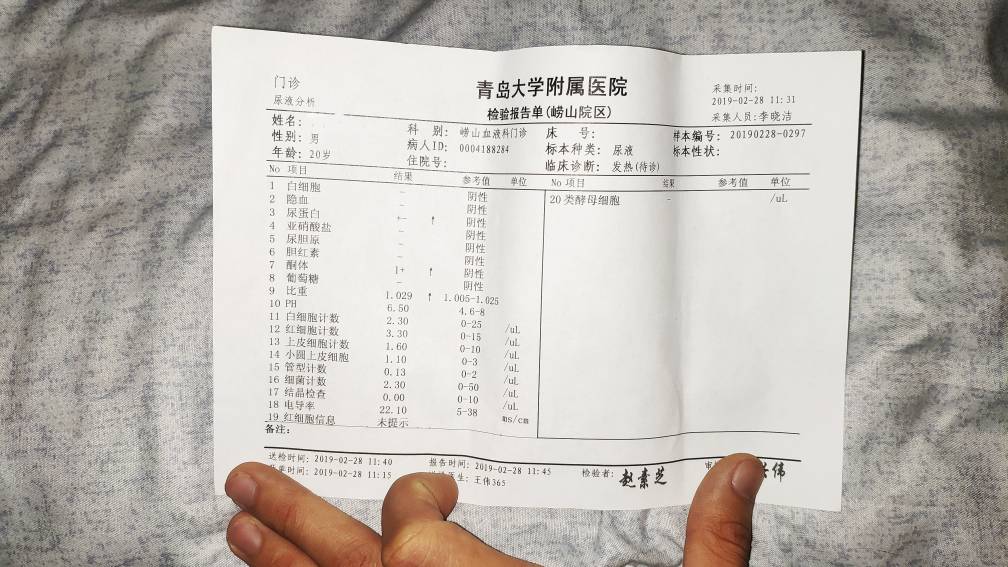 门诊
尿液分析
青岛大学附属医院
检验报告单(崂山院区)
采集时间:
2019-02-28 11:31
采集人员:李晓洁
姓名:
性别: 男
年龄: 20岁
科 别: 崂山血液科门诊
病人ID: 0004188284
住院号:
床 号:
标本种类: 尿液
临床诊断: 发热(待诊)
样本编号: 20190228-0297
标本性状:
No 项目 结果 参考值 单位
1 白细胞 - 阴性
2 隐血 - 阴性
3 尿蛋白 +- ↑ 阴性
4 亚硝酸盐 - 阴性
5 尿胆原 - 阴性
6 胆红素 - 阴性
7 酮体 1+ ↑ 阴性
8 葡萄糖 - 阴性
9 比重 1.029 ↑ 1.005-1.025
10 PH 6.50 4.6-8
11 白细胞计数 2.30 0-25 /uL
12 红细胞计数 3.30 0-15 /uL
13 上皮细胞计数 1.60 0-10 /uL
14 小圆上皮细胞 1.10 0-3 /uL
15 管型计数 0.13 0-2 /uL
16 细菌计数 2.30 0-50 /uL
17 结晶检查 0.00 0-10 /uL
18 电导率 22.10 5-38 ms/cm
19 红细胞信息 未提示
No 项目 结果 参考值 单位
20 类酵母细胞 - /uL
备注:
送检时间: 2019-02-28 11:40
报告时间: 2019-02-28 11:45
检验者: 赵素芝
单时间: 2019-02-28 11:15
医生: 王伟365
伟